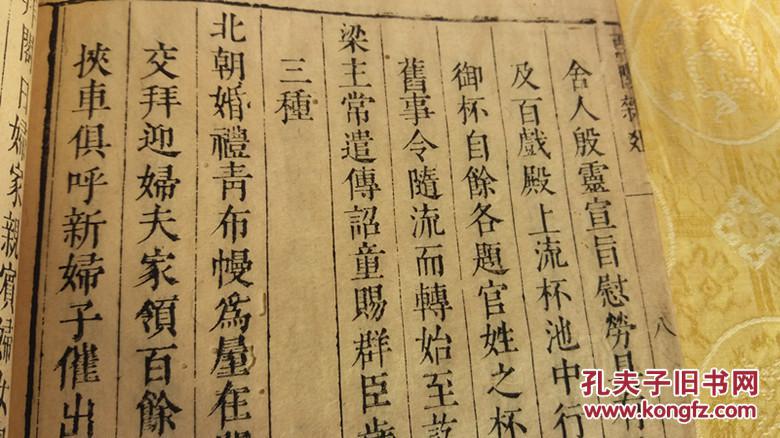 酉陽雜俎
一
八
舍人殷靈宣旨慰勞具有
及百戲殿上流杯池中行
御杯自餘各題官姓之杯
舊事令隨流而轉始至訖
梁主常遣傳詔童賜群臣歲
三種
北朝婚禮青布幔為屋在
交拜迎婦夫家領百餘
挾車俱呼新婦子催出
婦家親賓婦女
孔夫子旧书网
KONGFZ.COM